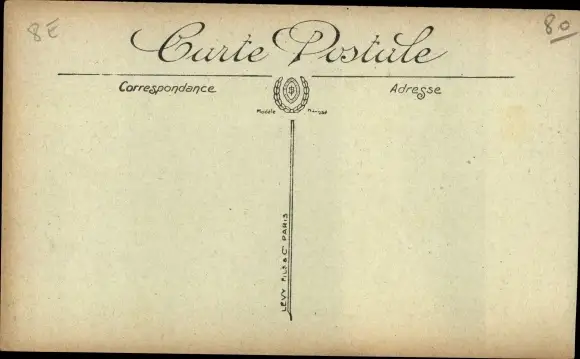 8E
80
Carte Postale
Correspondance
Adresse
Modèle
LÉVY FILS & Cie PARIS